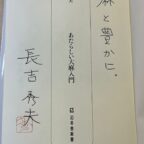 麻と豊かに。
あたらしい大麻入門
長吉秀夫